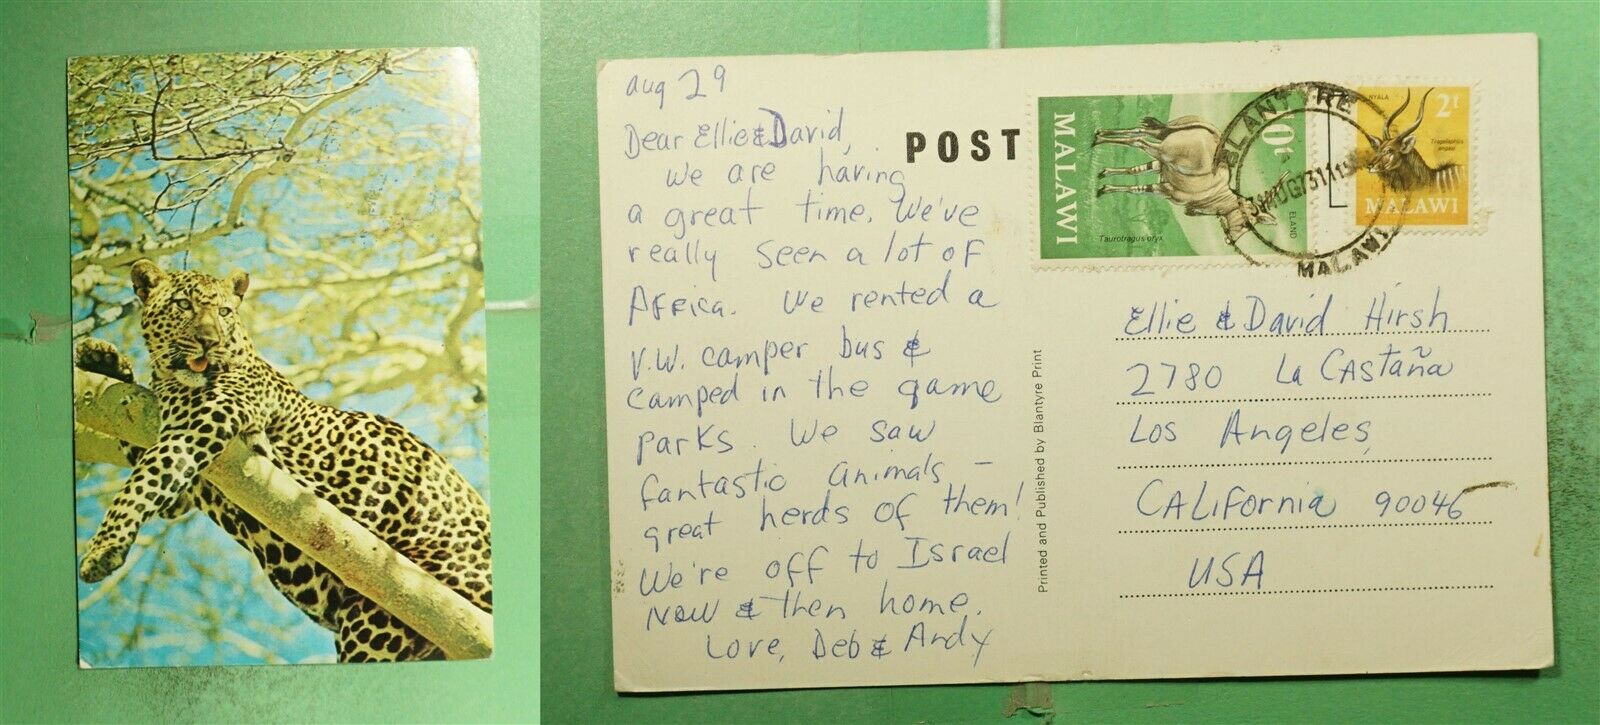 aug 29
Dear Ellie & David,
We are having
a great time. We've
really seen a lot of
Africa. We rented a
V.W. camper bus &
camped in the game
parks. We saw
fantastic animals –
great herds of them!
We're off to Israel
now & then home.
Love, Deb & Andy
POST
Printed and Published by Blantyre Print
MALAWI
10t
ELAND
Taurotragus oryx
NYALA
2t
Tragelaphus angasi
MALAWI
BLANTYRE
MALAWI
Ellie & David Hirsh
2780 La Castaña
Los Angeles,
CALIFornia 90046
USA